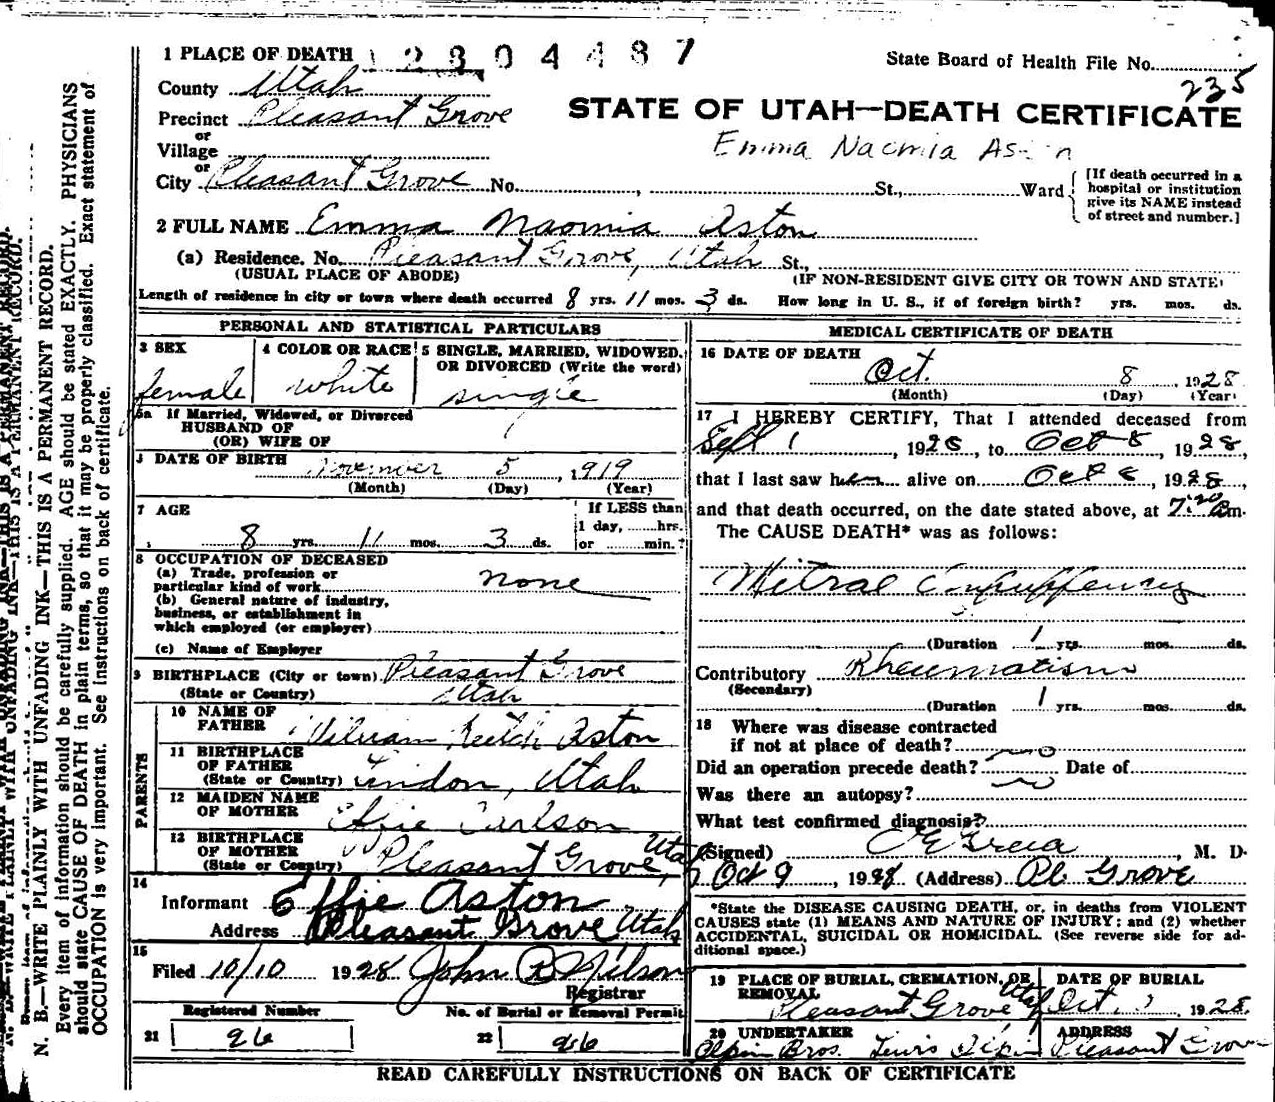 1 PLACE OF DEATH 12804487
State Board of Health File No. 235
County Utah
STATE OF UTAH—DEATH CERTIFICATE
Precinct Pleasant Grove
or
Village
Emma Naomia
or
City Pleasant Grove No. , St., Ward
[If death occurred in a
hospital or institution
give its NAME instead
of street and number.]
2 FULL NAME Emma Naomia Aston
(a) Residence. No. Pleasant Grove, Utah St.,
(USUAL PLACE OF ABODE)
(IF NON-RESIDENT GIVE CITY OR TOWN AND STATE)
Length of residence in city or town where death occurred 8 yrs. 11 mos. 3 ds. How long in U. S., if of foreign birth? yrs. mos. ds.
PERSONAL AND STATISTICAL PARTICULARS
3 SEX
female
4 COLOR OR RACE
white
5 SINGLE, MARRIED, WIDOWED,
OR DIVORCED (Write the word)
single
5a If Married, Widowed, or Divorced
HUSBAND OF
(OR) WIFE OF
DATE OF BIRTH
November 5, 1919
(Month) (Day) (Year)
7 AGE
8 yrs. 11 mos. 3 ds.
If LESS than
1 day, hrs.
or min.?
8 OCCUPATION OF DECEASED
(a) Trade, profession or
particular kind of work none
(b) General nature of industry,
business, or establishment in
which employed (or employer)
(c) Name of Employer
9 BIRTHPLACE (City or town) Pleasant Grove
(State or Country) Utah
PARENTS
10 NAME OF
FATHER William Aston
11 BIRTHPLACE
OF FATHER
(State or Country) Lindon, Utah
12 MAIDEN NAME
OF MOTHER Effie Carlson
13 BIRTHPLACE
OF MOTHER
(State or Country) Pleasant Grove, Utah
14
Informant Effie Aston
Address Pleasant Grove Utah
15
Filed 10/10 1928 John B Nilson
Registrar
Registered Number
21 96
No. of Burial or Removal Permit
22 96
MEDICAL CERTIFICATE OF DEATH
16 DATE OF DEATH
Oct. 8, 1928
(Month) (Day) (Year)
17 I HEREBY CERTIFY, That I attended deceased from
Sept 1, 1928, to Oct 8, 1928,
that I last saw her alive on Oct 8, 1928,
and that death occurred, on the date stated above, at m.
The CAUSE DEATH* was as follows:
Mitral Insufficiency
(Duration 1 yrs. mos. ds.
Contributory Rheumatism
(Secondary)
(Duration 1 yrs. mos. ds.
18 Where was disease contracted
if not at place of death?
Did an operation precede death? no Date of
Was there an autopsy? no
What test confirmed diagnosis?
(Signed) M. D.
Oct 9, 1928 (Address) Pl. Grove
*State the DISEASE CAUSING DEATH, or, in deaths from VIOLENT
CAUSES state (1) MEANS AND NATURE OF INJURY; and (2) whether
ACCIDENTAL, SUICIDAL OR HOMICIDAL. (See reverse side for ad-
ditional space.)
19 PLACE OF BURIAL, CREMATION, OR
REMOVAL
Pleasant Grove Utah
DATE OF BURIAL
Oct. 1928.
20 UNDERTAKER
Olpin Bros. Lewis Olpin
ADDRESS
Pleasant Grove
READ CAREFULLY INSTRUCTIONS ON BACK OF CERTIFICATE
N. B.—WRITE PLAINLY WITH UNFADING INK—THIS IS A PERMANENT RECORD.
Every item of information should be carefully supplied. AGE should be stated EXACTLY. PHYSICIANS
should state CAUSE OF DEATH in plain terms, so that it may be properly classified. Exact statement of
OCCUPATION is very important. See instructions on back of certificate.